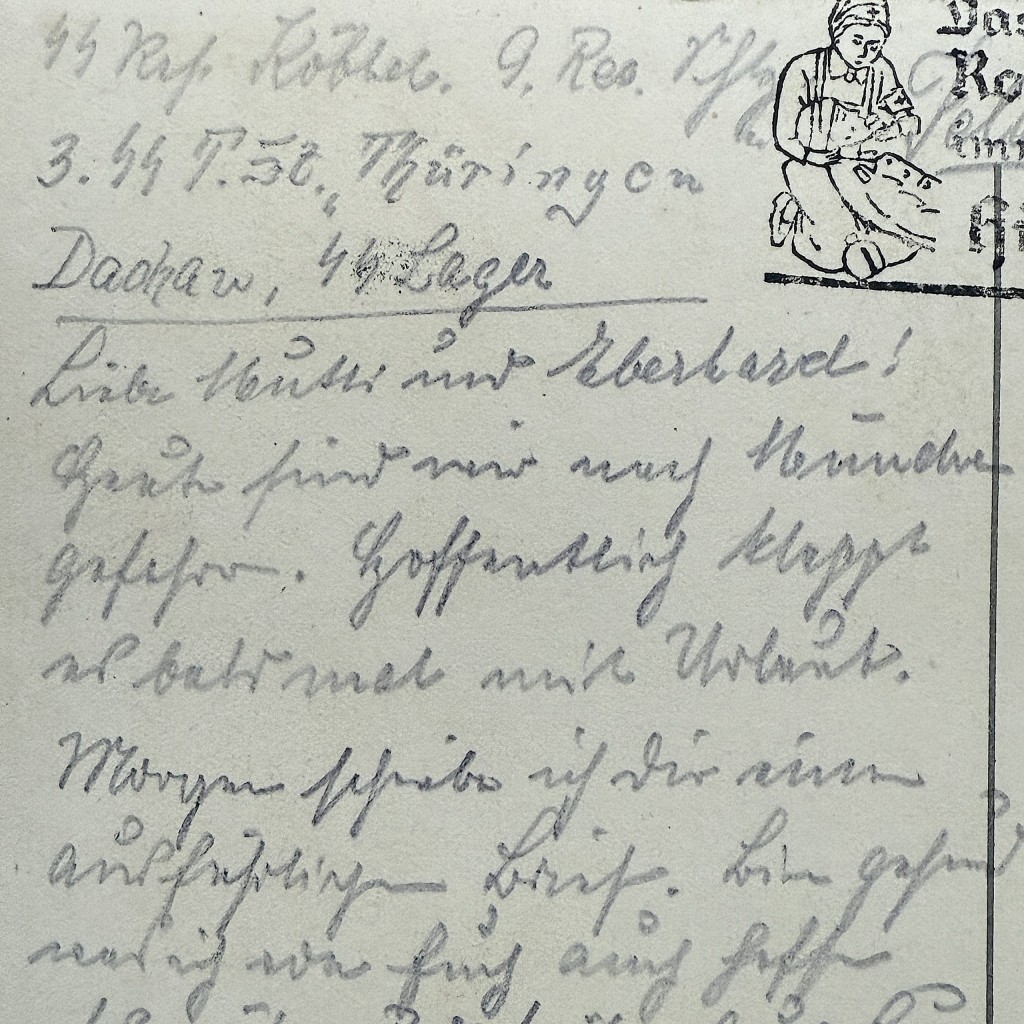 SS Köbbel. 9. Res.
3. SS T. St. „Thüringen
Dachau, SS Lager
Liebe Mutti und Eberhard!
Heute sind wir nach München
gefahren. Hoffentlich klappt
es bald mal mit Urlaub.
Morgen schreibe ich Dir einen
ausführlichen Brief. Bin gesund
was ich von Euch auch hoffe
Das